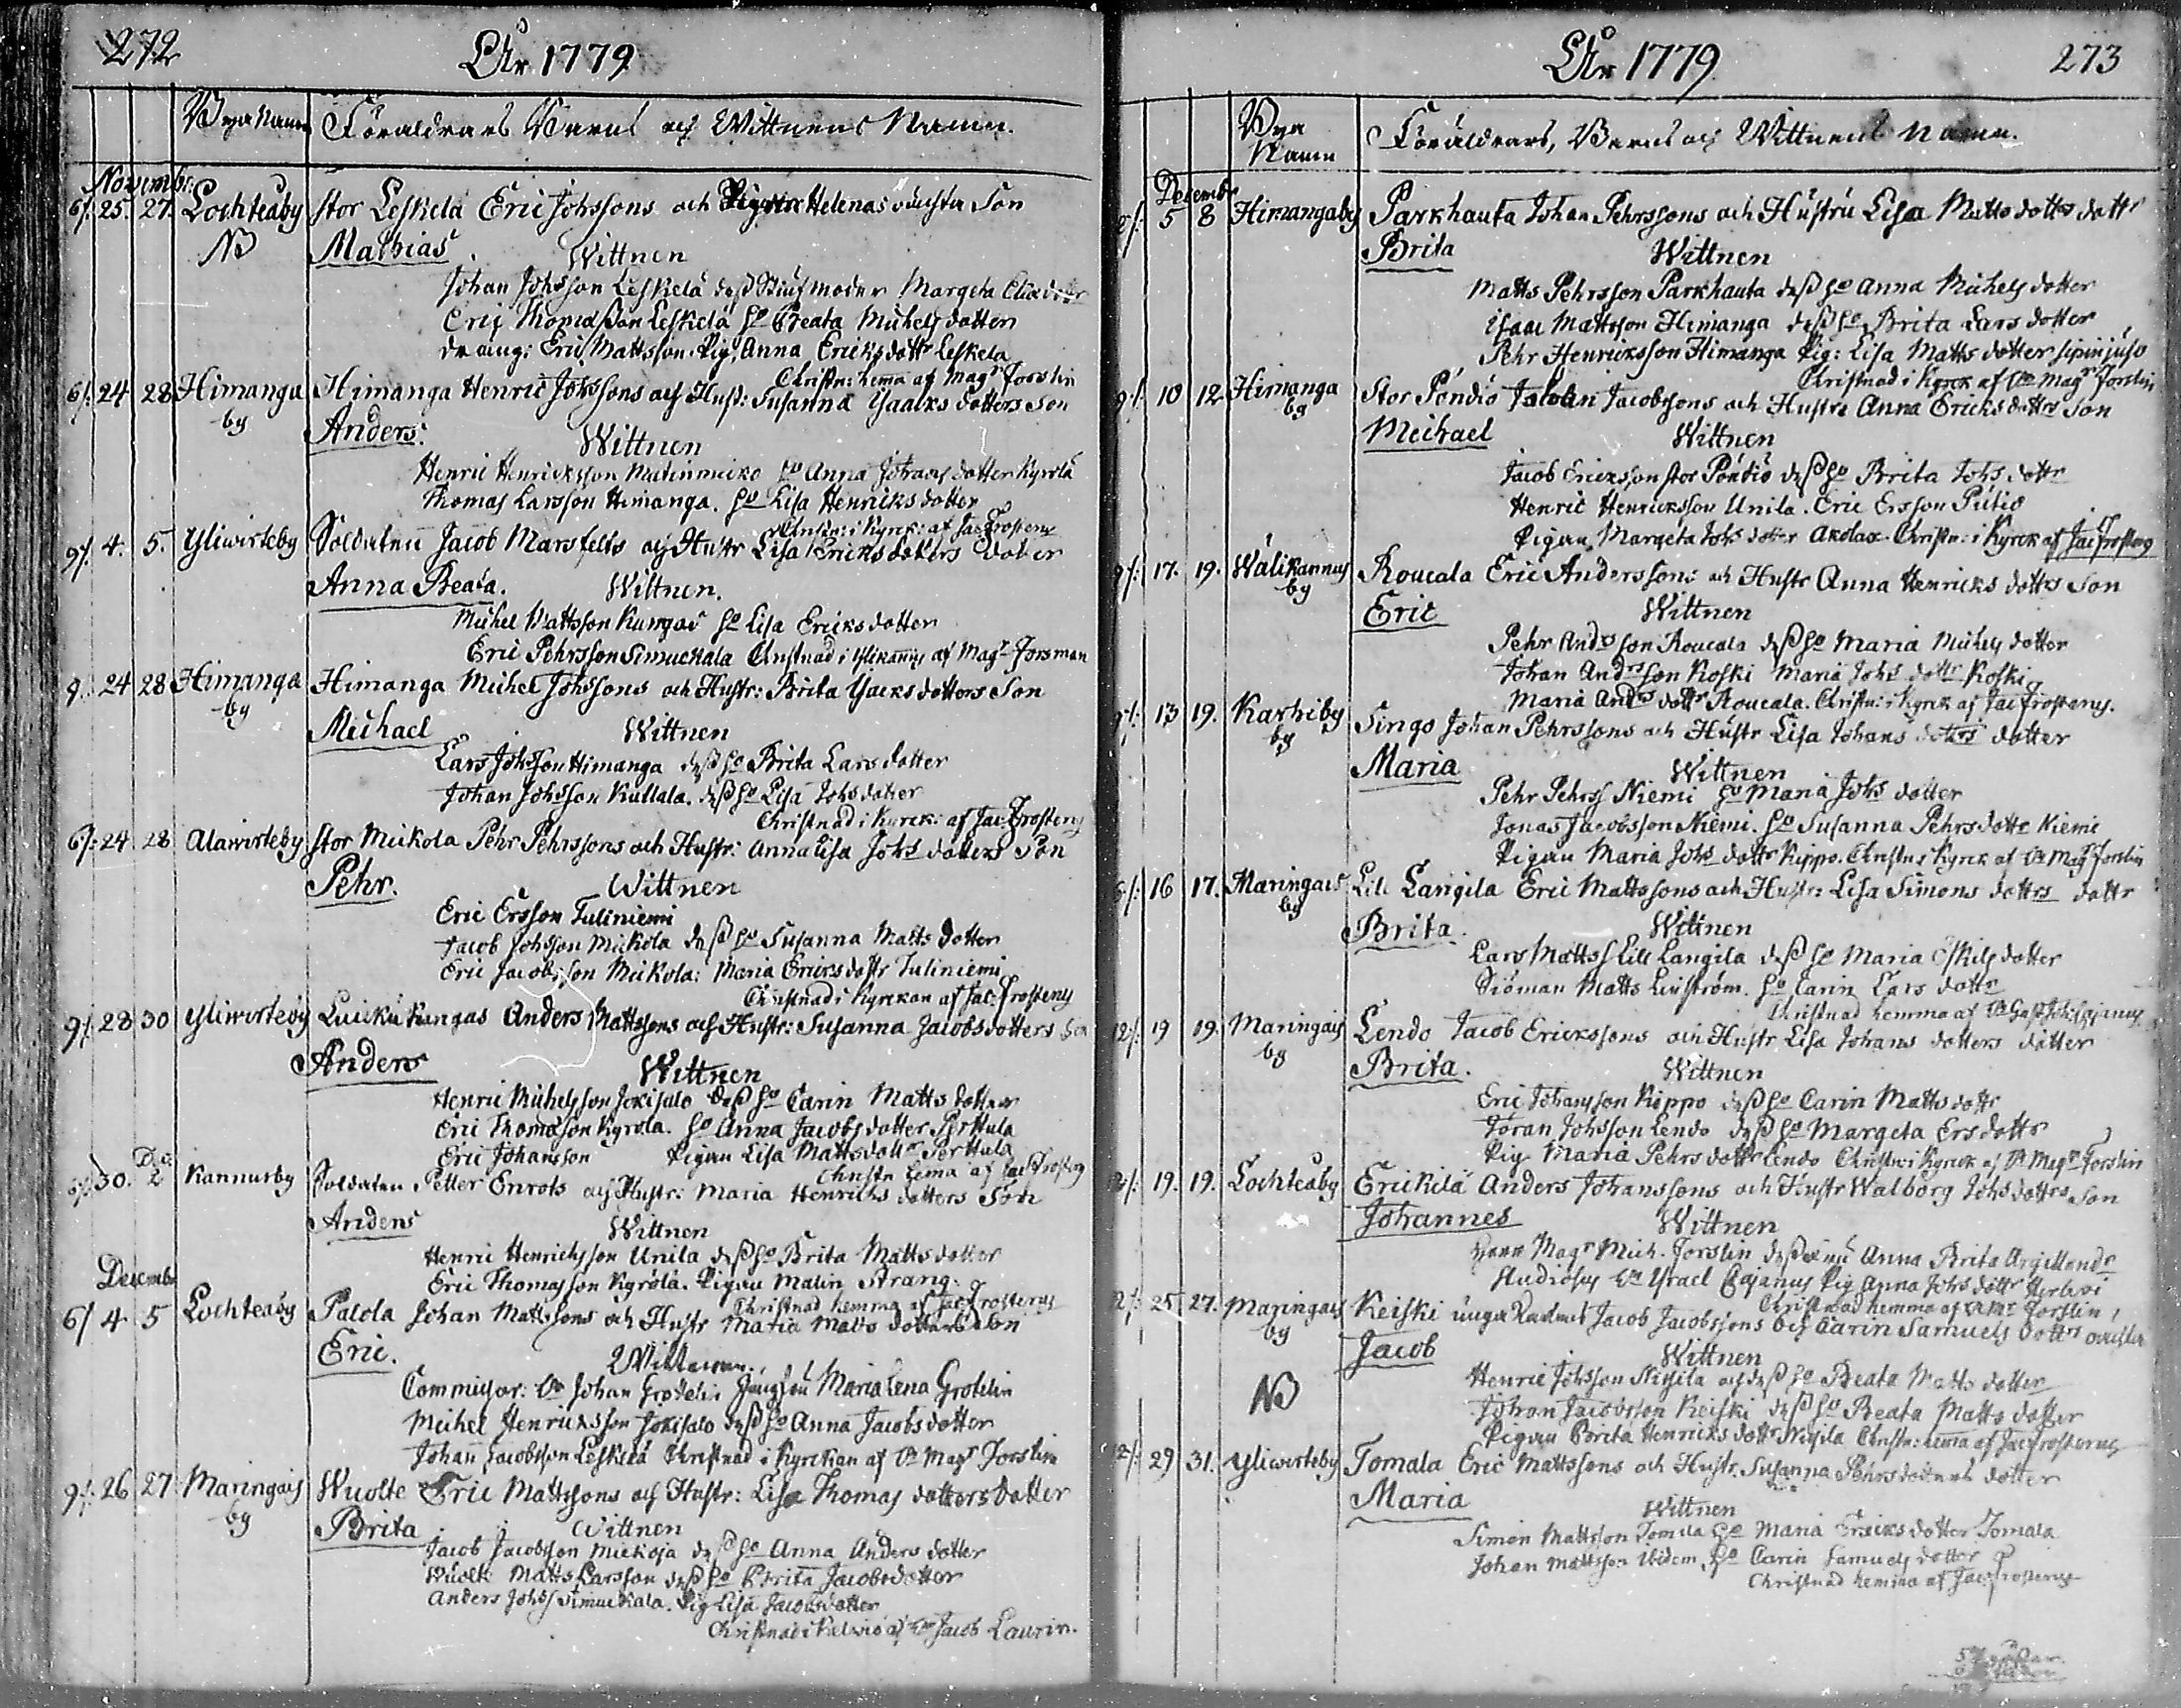 272
År 1779
Byanamn Föräldrars Barns och Wittnens Namn.
Novembr:
6/. 25. 27. Lochteaby Stor Leskelä Eric Johssons och Helenas oächta Son
NB Mathias Wittnen
Johan Johsson Leskelä dess Stiufmoder Margeta
Eric Thomasson Leskelä ho Beata Michels dotter
dräng: Eric Mattsson Pig. Anna Ericks dottr Leskela
Christn: hema af Magr Forslin
6/. 24 28 Himanga Himanga Henric Johssons och Hust: Susanna Isaacks dotters Son
by Anders. Wittnen
Henric Henricksson ho Anna Johans dotter Kyrölä
Thomas Larsson Himanga. ho Lisa Henricks dotter
Christn: i Kyrck: af Jac Frosterus
9/. 4. 5. Yliwirteby Soldaten Jacob Marsfelts och Hustr Lisa Ericks dotters dotter
Anna Beata. Wittnen.
Michel Mattsson Kungas ho Lisa Ericks dotter
Eric Pehrsson Simuckala Christnad i Ylikannus af Magr Forsman
9. 24 28 Himanga Himanga Michel Johssons och Hustr: Brita Isacks dotters Son
by
Michael Wittnen
Lars Johsson Himanga dess ho Brita Lars dotter
Johan Johsson Kullala. dess ho Lisa Johs dotter
Christnad i Kyrck: af Jac. Frosterus
6/: 24 28 Alawirteby Stor Mickola Pehr Pehrssons och Hustr: Anna Lisa Johs dotters Son
Pehr. Wittnen
Eric Ersson Tuliniemi
Jacob Johsson Mickola dess ho Susanna Matts dotter
Eric Jacobsson Mickola: Maria Ericks dottr Tuliniemi
Christnad i Kyrckan af Jac. Frosterus
9/. 28 30 Yliwirteby Luickukangas Anders Mattssons och Hustr: Susanna Jacobs dotters Son
Anders Wittnen
Henric Michelsson Jokisalo dess ho Carin Matts dotter
Eric Thomasson Kyrola. ho Anna Jacobs dotter Perttula
Eric Johansson Pigan Lisa Matts dottr Perttula
Christn hema af Jac Frosterus
30. 2 Kannusby Soldaten Petter Enrots och Hustr: Maria Henricks dotters Son
Anders Wittnen
Henric Henricksson Unila dess ho Brita Matts dotter
Eric Thomasson Kyrölä. Pigan Malin Strang.
Christnad hemma af Jac Frosterus
Decembr
6/ 4 5 Lochteaby Palola Johan Mattssons och Hustr Maria Matts dotters Son
Eric. Wittnen.
Commissar: Hr Johan Grotelin Jungfru Maria Lena Grotelin
Michel Henricksson Jokisalo dess ho Anna Jacobs dotter
Johan Jacobsson Leskelä Christnad i Kyrckan af Hr Magr Forslin
9/. 26 27 Maringais Wuolte Eric Mattssons och Hustr: Lisa Thomas dotters Dotter
by Brita Wittnen
Jacob Jacobsson Mickoja dess ho Anna Anders dotter
Wuolte Matts Larsson dess ho Brita Jacobs dotter
Anders Johss Simuckala. Pig Lisa Jacobs dotter
Christnad i Kelwiå af Hr Jacob Laurin.
År 1779.
273
Bya Namn Föräldrars, Barns och Wittnens Namn.
Decembr
5 8 Himangaby Parkhauta Johan Pehrssons och Hustru Lisa Matts dottrs dottr
Brita Wittnen
Matts Pehrsson Parkhauta dess ho Anna Michels dotter
Isaac Mattsson Himanga dess ho Brita Lars dotter
Pehr Henricksson Himanga Pig: Lisa Matts dotter
Christnad i Kyrck af Hr Magr Forslin
9/. 10 12 Himanga Stor Pöndiö Johan Jacobssons och Hustru Anna Ericks dottrs Son
by
Michael Wittnen
Jacob Ericksson Stor Pöndiö dess ho Brita Johs dottr
Henric Henricksson Unila. Eric Ersson
Pigan Margeta Johs dotter Christn: i Kyrck af Jac Frosterus
9/. 17. 19. Wälikannus Roucala Eric Anderssons och Hustr Anna Henricks dottrs Son
by
Eric Wittnen
Pehr Andrsson Roucala dess ho Maria Michels dotter
Johan Andrsson Koski Maria Johs dottr Koski
Maria Andrs dottr Roucala. Christn: i Kyrck af Jac Frosterus.
9/. 13 19. Karhiby Singo Johan Pehrssons och Hustr Lisa Johans dotters dotter
by
Maria Wittnen
Pehr Pehrss Niemi ho Maria Johs dotter
Jonas Jacobsson Niemi. ho Susanna Pehrs dottr Niemi
Pigan Maria Johs dottr Kippo. Christn i Kyrck af Hr Magr Forslin
6/. 16 17. Maringais Lill Langila Eric Mattssons och Hustr: Lisa Simons dottrs dottr
by
Brita. Wittnen
Lars Mattss Lill Langila dess ho Maria Eskils dotter
Siöman Matts Lieström. ho Carin Lars dottr
Christnad hemma af
12/. 19 19. Maringais Lendo Jacob Erickssons och Hustr Lisa Johans dotters dotter
by
Brita. Wittnen
Eric Johansson Kippo dess ho Carin Matts dottr
Jöran Johsson Lendo dess ho Margeta Ers dottr
Pig Maria Pehrs dottr Lendo Christn i Kyrck af Hr Magr Forslin
12/. 19. 19. Lochteaby Erickilä Anders Johanssons och Hustr Walborg Johs dottrs Son
Johannes Wittnen
Herr Magr Mich. Forslin dess Anna Brita
Studiosus Hr Israel Cajanus Pig Anna Johs dottr
Christnad hemma af Hr Mr Forslin
12/. 25 27. Maringais Keiski Jacob Jacobssons och Carin Samuels dottrs oächta
by
Jacob Wittnen
NB Henric Johsson och dess ho Beata Matts dotter
Johan Jacobsson Keiski dess ho Beata Matts dotter
Pigan Brita Henricks dottr Christn: hema af Jac Frosterus
12/. 29 31. Yliwirteby Tomala Eric Mattssons och Hustr. Susanna Pehrs dotters dotter
Maria Wittnen
Simon Mattsson Tomala ho Maria Ericks dotter Tomala
Johan Mattsson Ibidem ho Carin Samuels dotter
Christnad hemma af Jac Frosterus